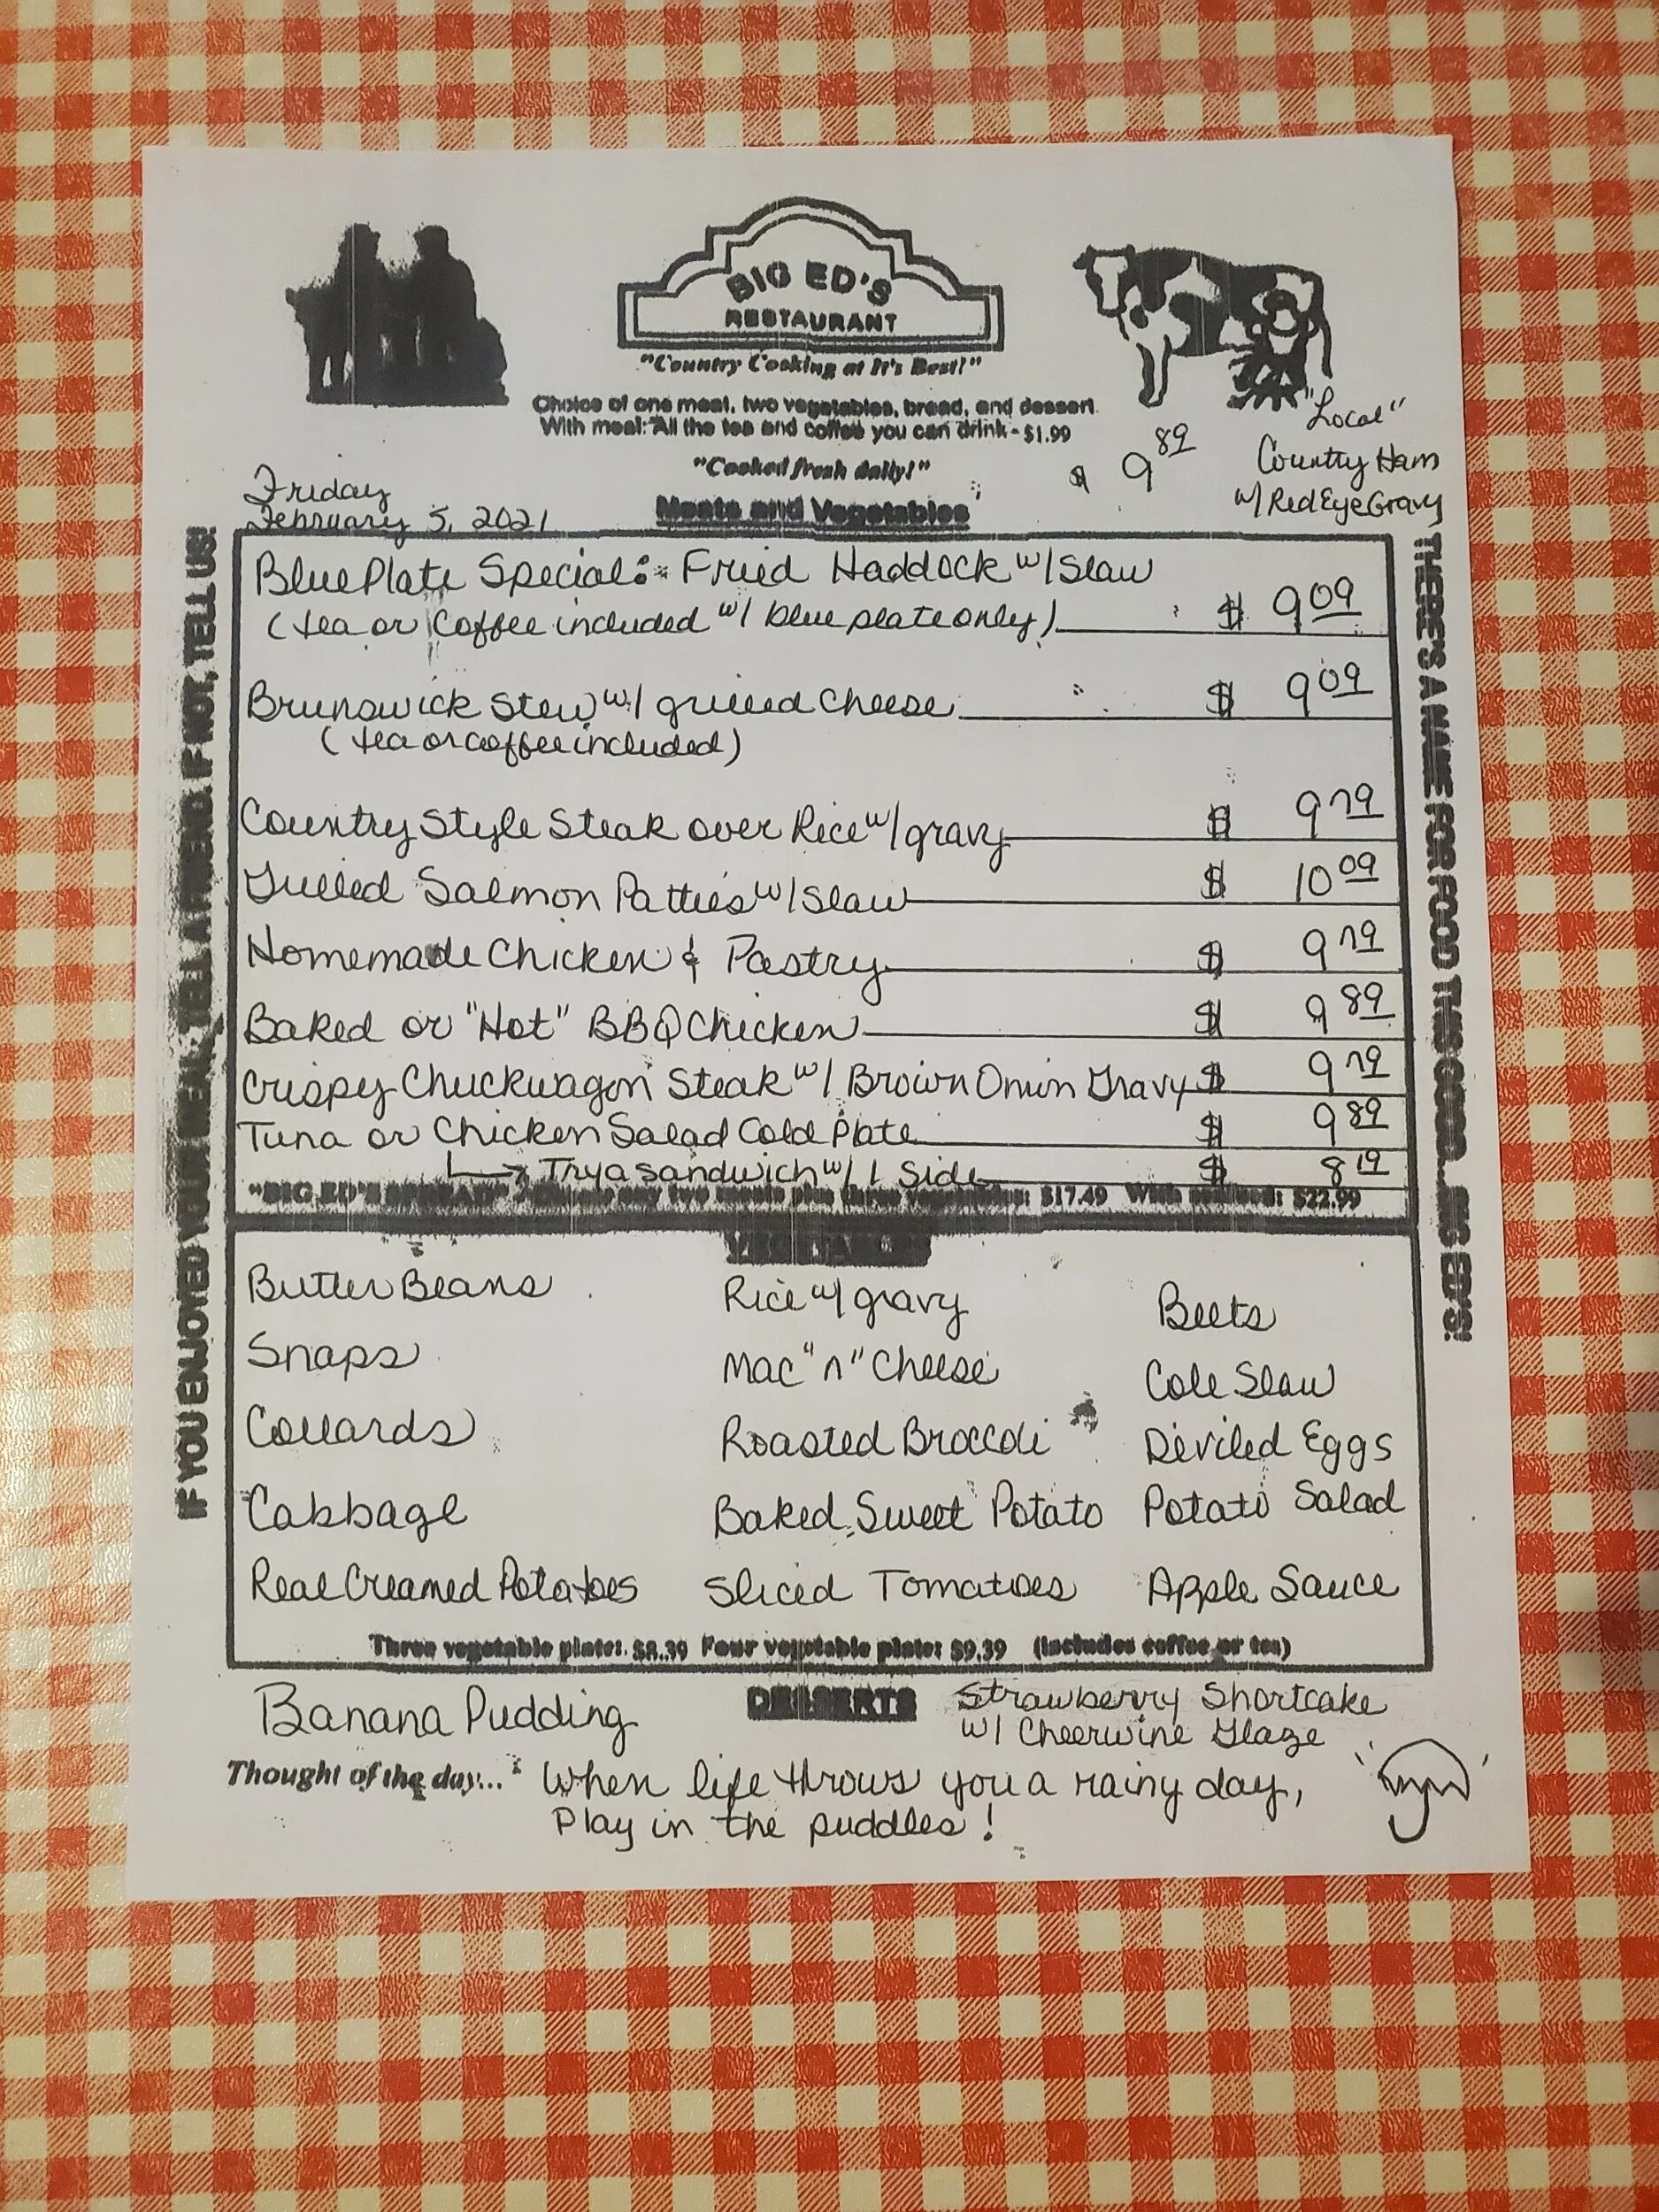 BIG ED'S
RESTAURANT
"Country Cooking at It's Best!"
Choice of one meat, two vegetables, bread, and dessert
With meal: All the tea and coffee you can drink - $1.99
"Cooked fresh daily!"
"Local"
$ 9 89 Country Ham
w/ Red Eye Gravy
Friday
February 5, 2021
Meats and Vegetables
IF YOU ENJOYED YOUR MEAL, TELL A FRIEND. IF NOT, TELL US!
THERE'S A NAME FOR FOOD THIS GOOD...BIG ED'S!
Blue Plate Special: Fried Haddock w/ Slaw
(tea or coffee included w/ blue plate only) $ 9 09
Brunswick Stew w/ grilled cheese $ 9 09
(tea or coffee included)
Country Style Steak over Rice w/ gravy $ 9 79
Grilled Salmon Patties w/ Slaw $ 10 09
Homemade Chicken & Pastry $ 9 79
Baked or "Hot" BBQ Chicken $ 9 89
Crispy Chuckwagon Steak w/ Brown Onion Gravy $ 9 79
Tuna or Chicken Salad Cold Plate $ 9 89
Try a sandwich w/ 1 Side $ 8 19
"BIG ED'S SPREAD" any two meats plus three vegetables: $17.49 With seafood: $22.99
VEGETABLES
Butter Beans Rice w/ gravy Beets
Snaps Mac "n" Cheese Cole Slaw
Collards Roasted Broccoli Deviled Eggs
Cabbage Baked Sweet Potato Potato Salad
Real Creamed Potatoes Sliced Tomatoes Apple Sauce
Three vegetable plate: $8.39 Four vegetable plate: $9.39 (Includes coffee or tea)
DESSERTS
Banana Pudding Strawberry Shortcake
w/ Cheerwine Glaze
Thought of the day... When life throws you a rainy day,
Play in the puddles!